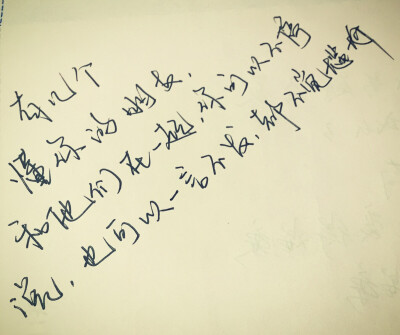 有几个
懂你的朋友,
和他们在一起,你可以不停
说,也可以一言不发,都不觉尴尬